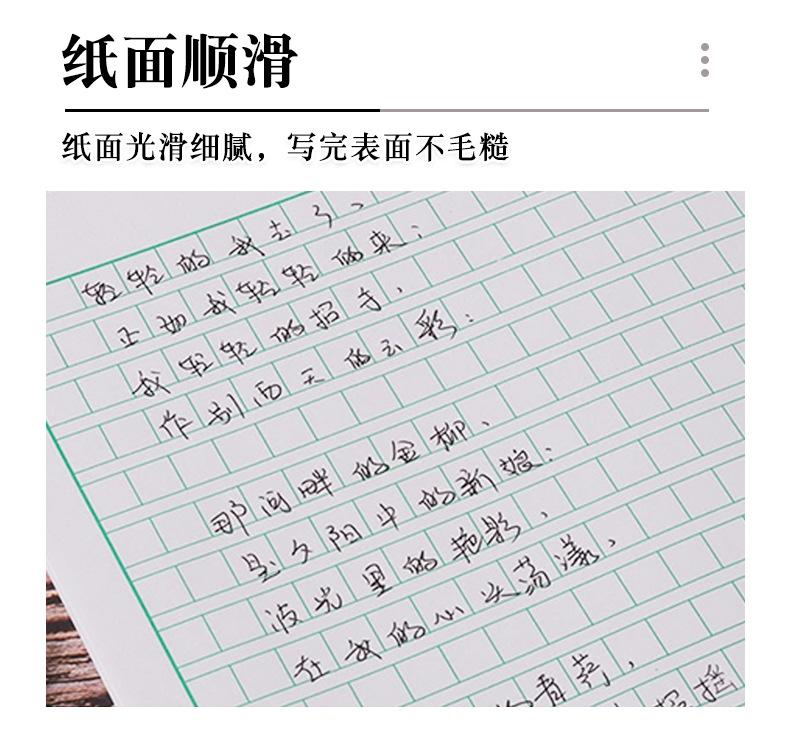 纸面顺滑
纸面光滑细腻，写完表面不毛糙
轻轻的我去了、
正如我轻轻的来；
我轻轻的招手，
作别西天的云彩；
那河畔的金柳、
是夕阳中的新娘；
波光里的艳影、
在我的心头荡漾、
的青荇，
招摇